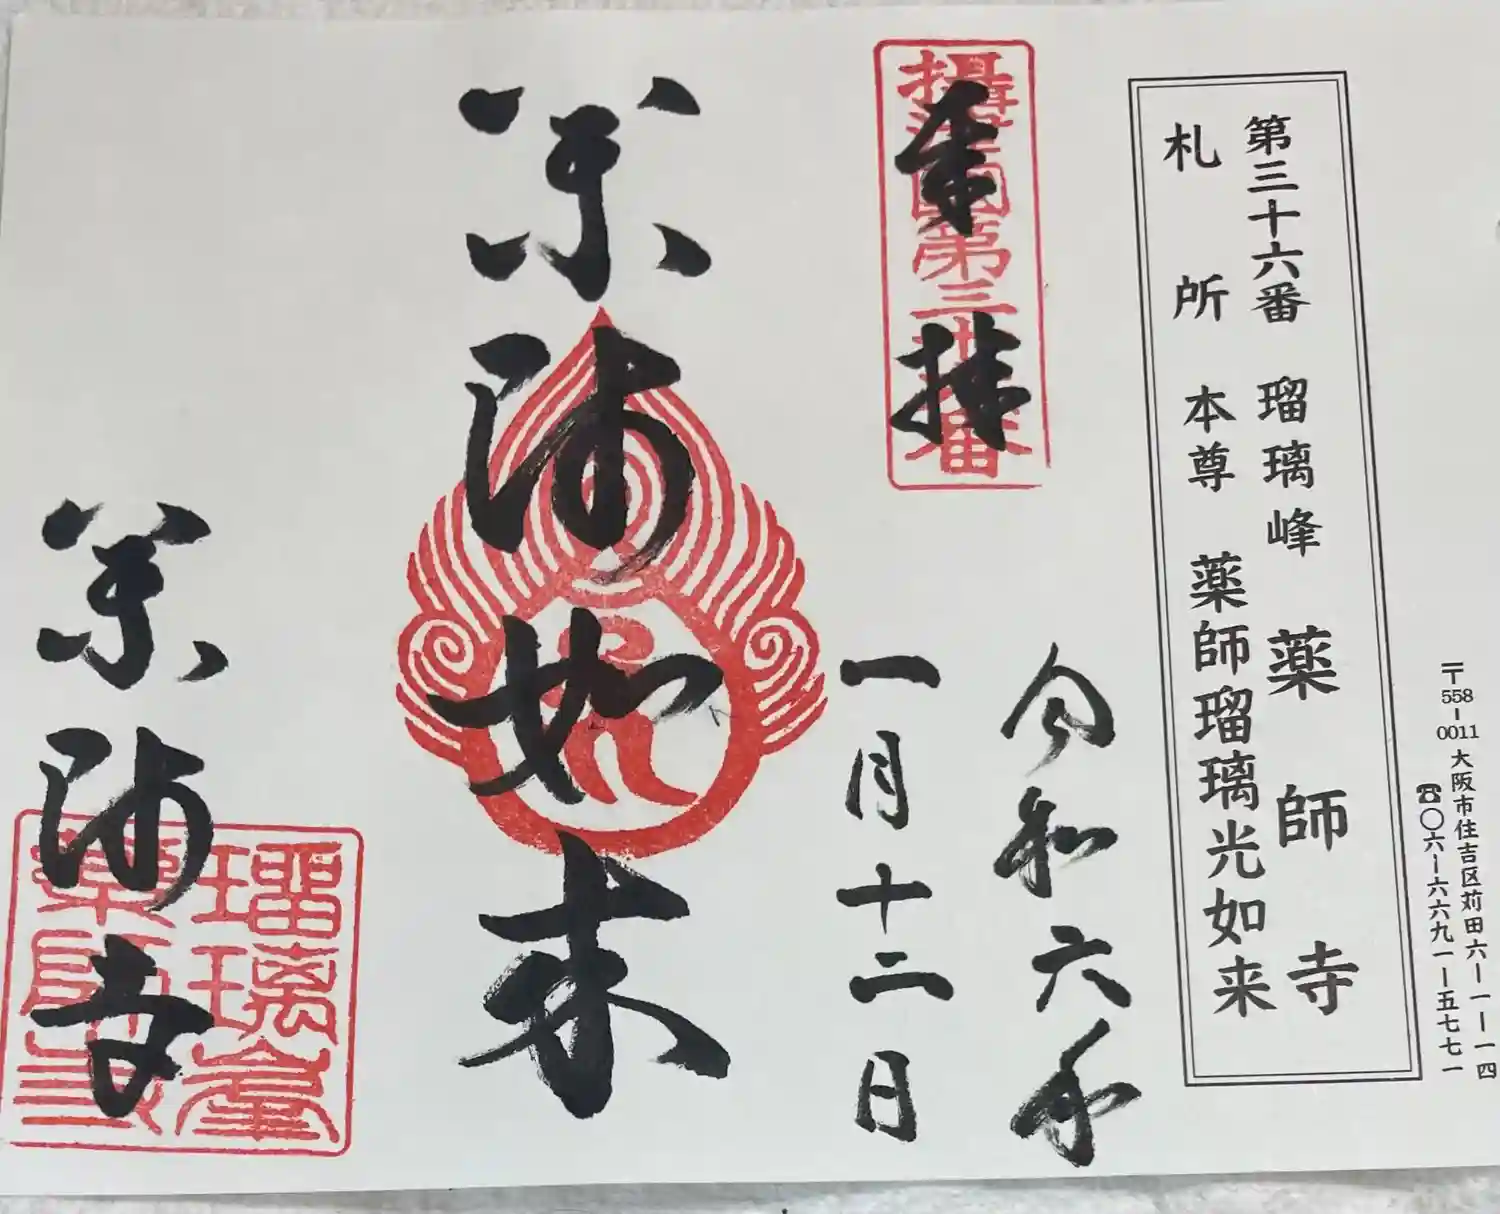 第三十六番 瑠璃峰 薬師寺
札所 本尊 薬師瑠璃光如来
〒558-0011 大阪市住吉区苅田六ー一ー一四
☎〇六ー六六九一ー五七七一
奉拝
摂津国第三十六番
令和六年
一月十二日
薬師如来
薬師寺
瑠璃峯
薬師寺